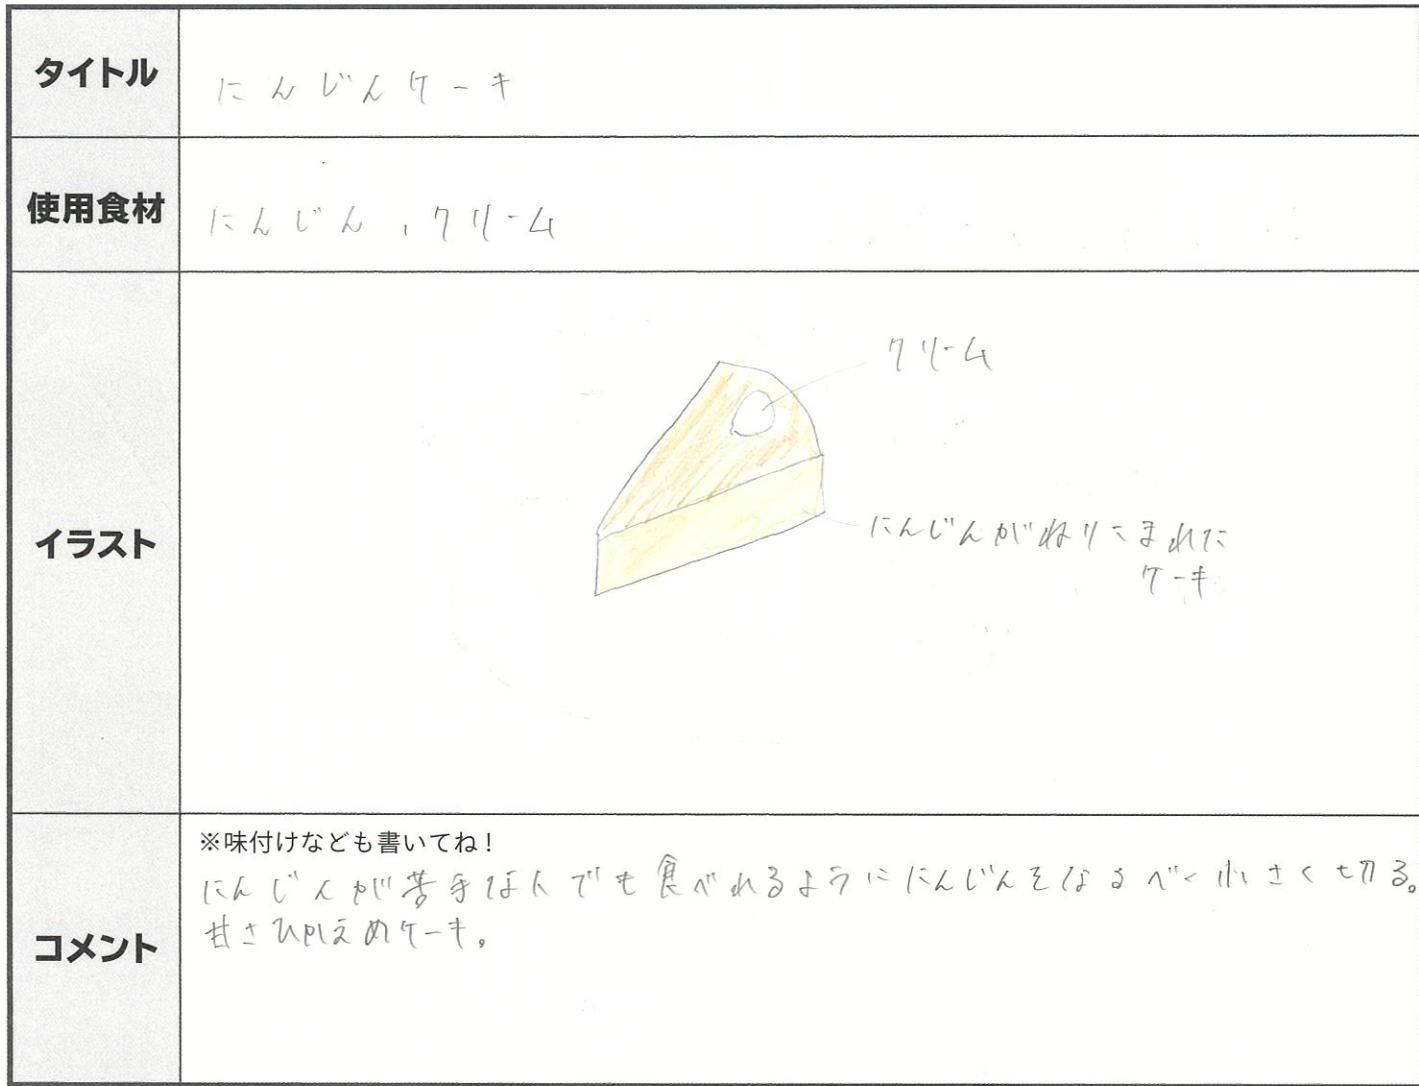 タイトル
にんじんケーキ
使用食材
にんじん、クリーム
イラスト
クリーム
にんじんがねりこまれた
ケーキ
コメント
※味付けなども書いてね!
にんじんが苦手な人でも食べれるようににんじんをなるべく小さく切る。
甘さひかえめケーキ。